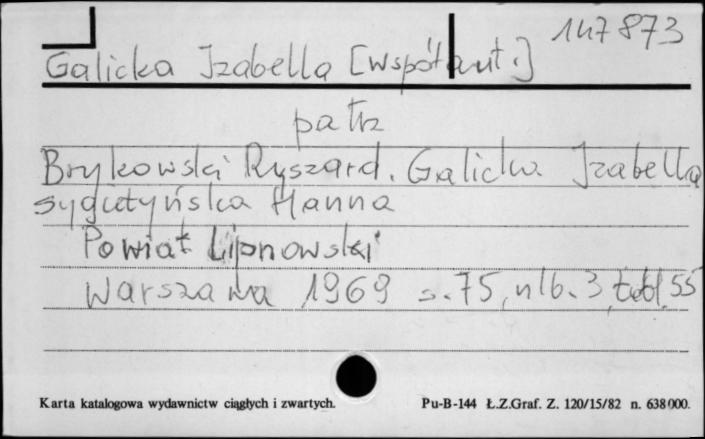 147873
Galicka Izabella [współaut.]
patrz
Brykowski Ryszard. Galicka Izabella
Sygietyńska Hanna
Powiat Lipnowski
Warszawa 1969 s. 75, nlb. 3, tabl. 55
Karta katalogowa wydawnictw ciągłych i zwartych. Pu-B-144 Ł.Z.Graf. Z. 120/15/82 n. 638000.